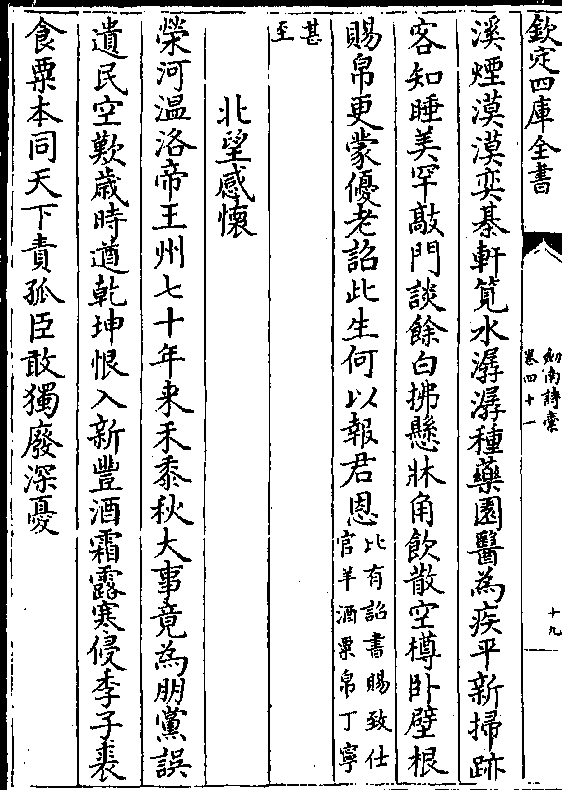 欽定四庫全書
劍南詩藁
卷四十一
十九
溪煙漠漠弈棊軒筧水潺潺種藥園醫為疾平新掃跡
客知睡美罕敲門談餘白拂懸牀角飲散空樽卧壁根
賜帛更蒙優老詔此生何以報君恩
比有詔書賜致仕
官羊酒粟帛丁寧
甚
至
北望感懷
榮河温洛帝王州七十年来禾黍秋大事竟為朋黨誤
遺民空歎歲時遒乾坤恨入新豐酒霜露寒侵季子裘
食粟本同天下責孤臣敢獨廢深憂